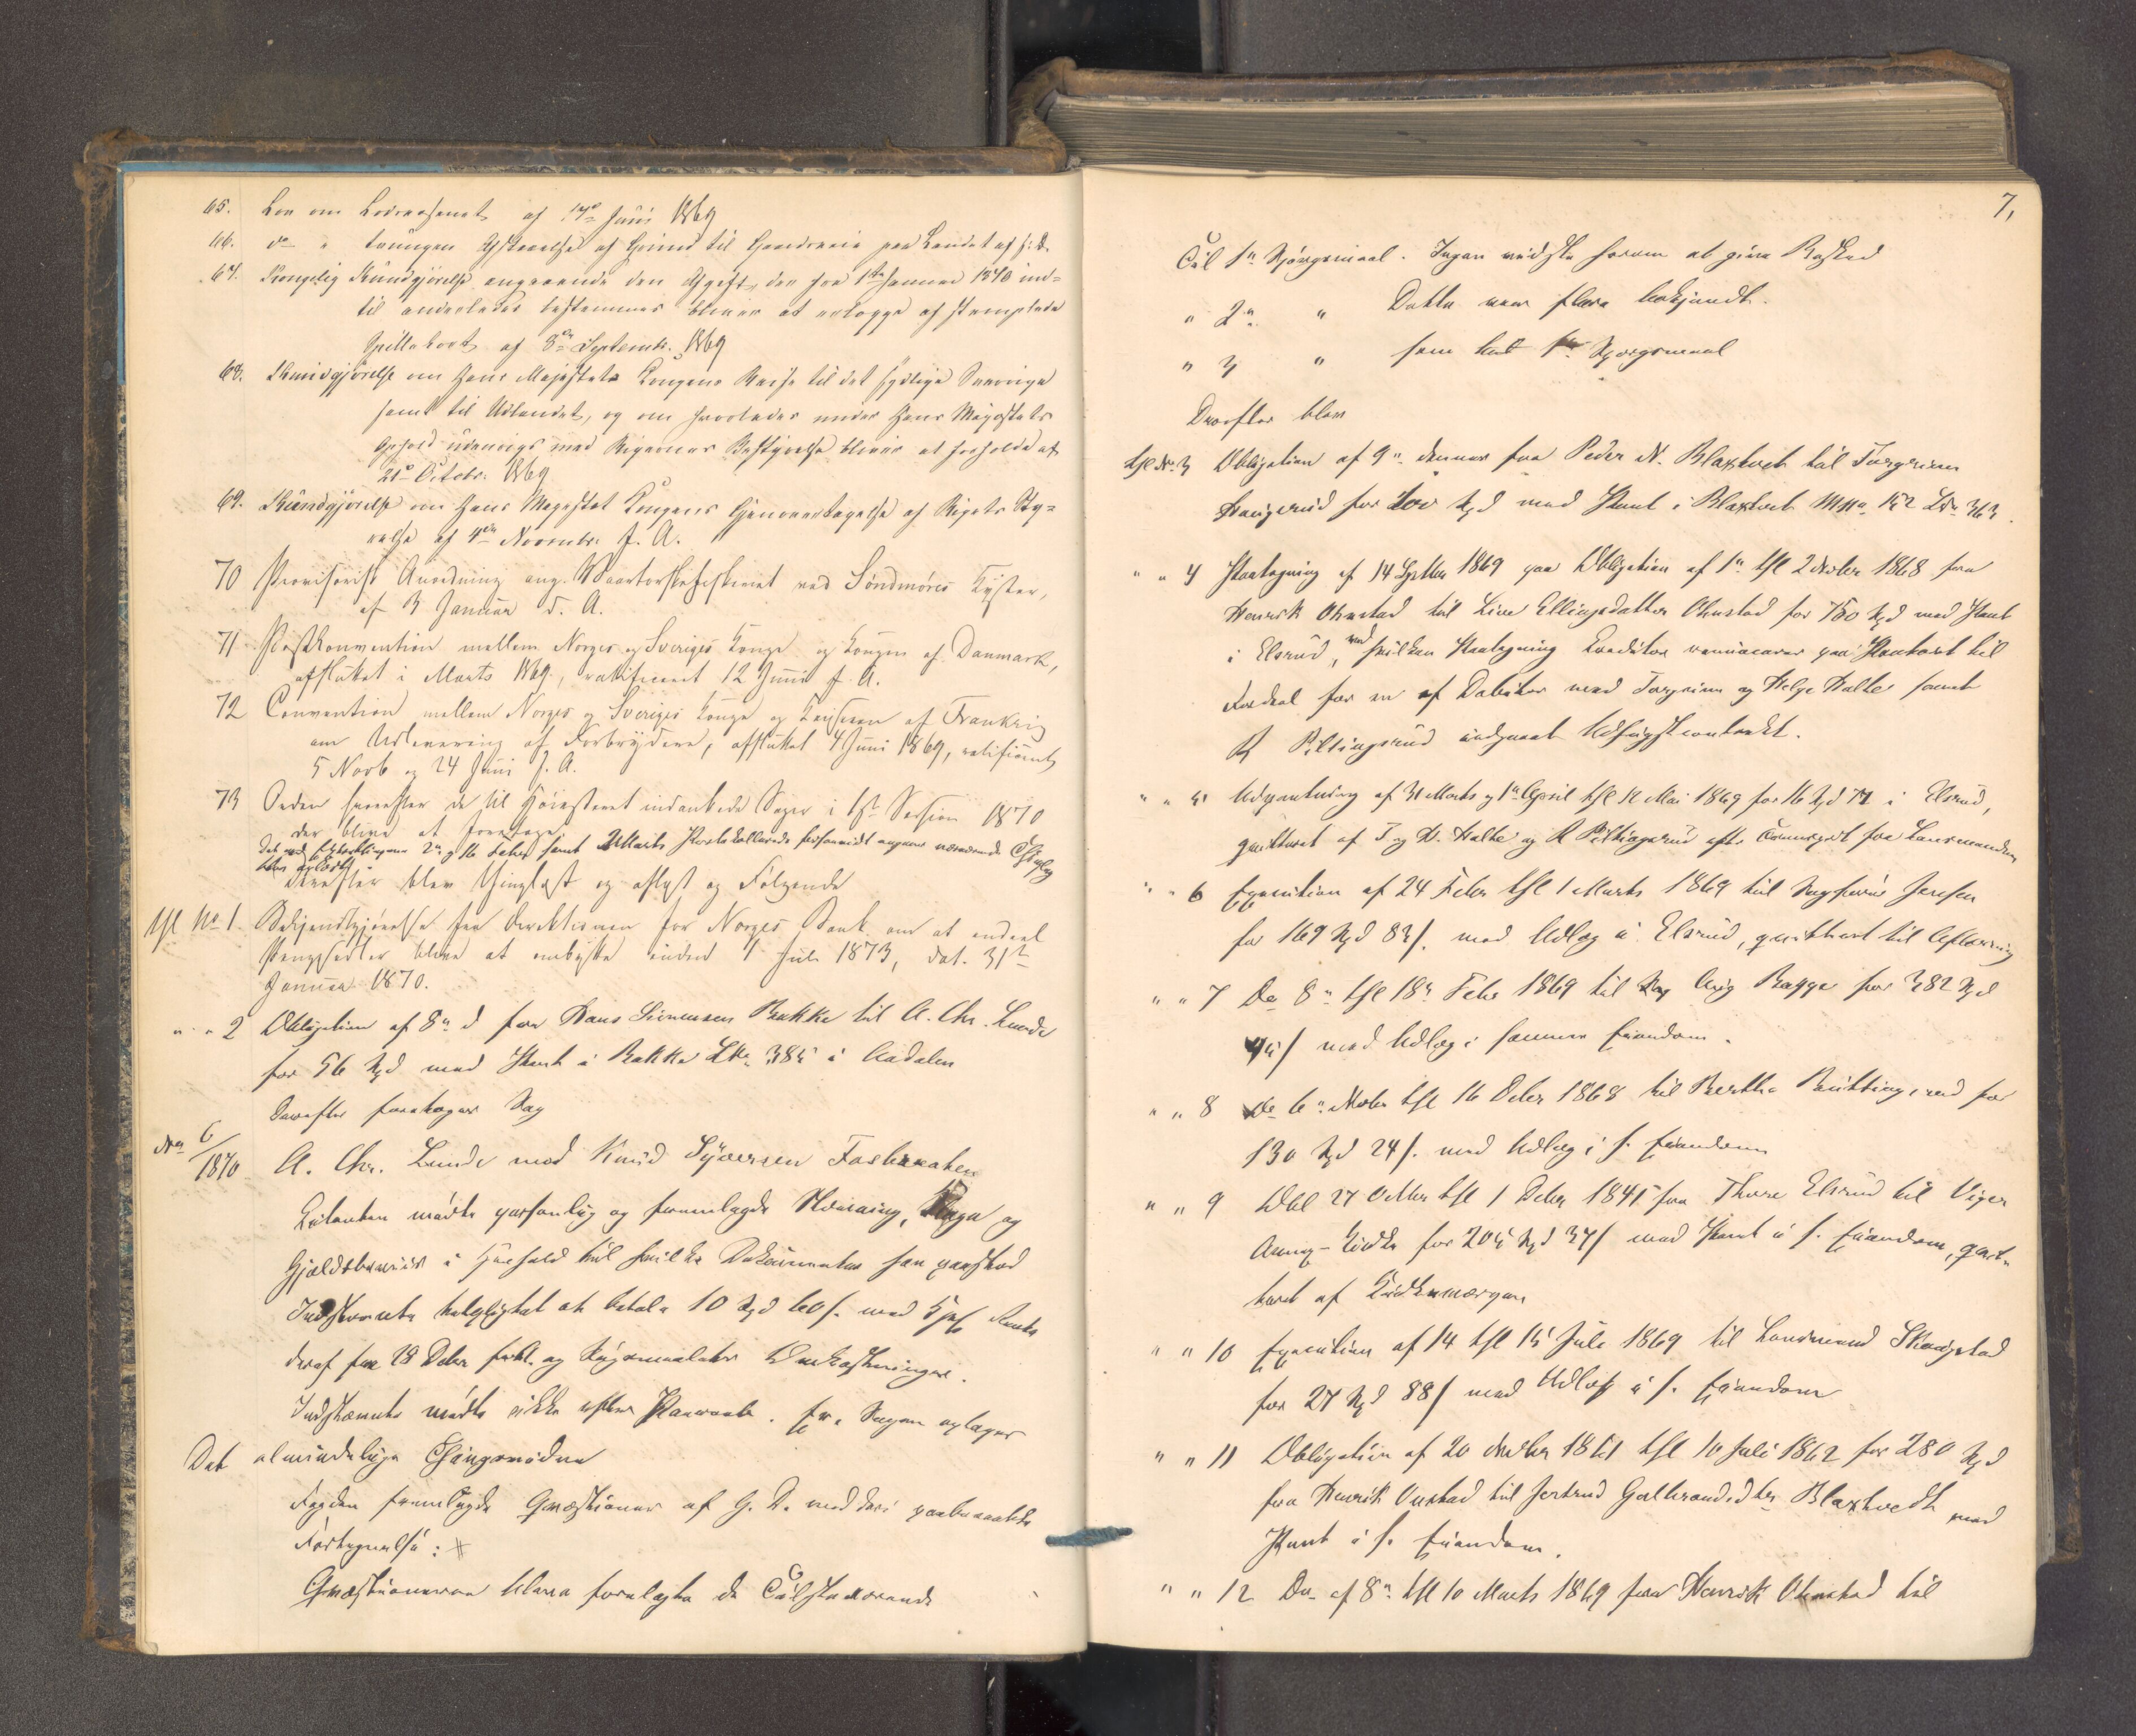 65. Lov om Lodsvæsenet af 17de Juni 1869
66. do " tvungen Afstaaelse af Grund til Handverie paa Landet af s. D.
67. Kongelig Kundgjørelse angaaende den Afgift, der fra 1ste Januar 1870 ind-
til anderledes bestemmes bliver at erlægge af stemplede
Spillekort af 3die Septembr. 1869
68. Kundgjørelse om Hans Majestæts Kongens Reise til det sydlige Sverrige
samt til Udlandet, og om hvorledes under Hans Majestæts
Ophold udenrigs med Rigernes Bestyrelse bliver at forholde af
21de Octobr. 1869
69. Kundgjørelse om Hans Majestæt Kongens Gjenovertagelse af Rigets Sty-
relse af 4de Novembr. f. A.
70 Provisorisk Anordning ang. Vaartorskefiskeriet ved Søndmøres Kyster,
af 3 Januar d. A.
71 Postkonvention mellem Norges og Sveriges Konge og Kongen af Danmark,
afsluttet i Marts 1869, ratificeret 12 Juni f. A.
72 Convention mellem Norges og Sveriges Konge og Keiseren af Frankrig
om Udlevering af Forbrydere, afsluttet 4 Juni 1869, ratificeret
5 Novb og 24 Juni f. A.
73 Orden hvorefter de til Høiesteret indankede Sager i 1ste Session 1870
der blive at foretage
Derefter blev Thinglæst og aflyst og Følgende
tgl No 1. Bekjendtgjørelse fra Direktionen for Norges Bank om at endeel
Pengesedler blive at ombytte inden 1 Juli 1873, dat. 31te
Januar 1870.
" " 2 Obligation af 8de d fra Hans Simensen Bakke til A. Chr. Lunde
for 56 Spd med Pant i Bakke LNr 385 i Aadalen
Derefter foretages Sag
Nr 6/1870 A. Chr. Lunde mod Knud Syversen Fosbraaten
Citanten mødte personlig og fremlagde Stævning, Klage og
Gjældsbeviis i Henhold til hvilke Dokumenter han paastod
Indstævnte tilpligtet at betale 10 Spd 60 s. med 5 pct Rente
deraf fra 28 Decbr f. A. og Søgsmaalets Omkostninger.
Indstævnte mødte ikke efter Paaraab. Sagen optages
Det almindelige Thingsvidne
Fogden fremlagde Qvæstioner af G. D. med deri paaberaabte
Fortegnelse : #
Qvæstionerne bleve forelagte de Tilstedeværende
7,
Til 1ste Spørgsmaal. Ingen vidste herom at give Besked
" 2det " Dette var flere bekjendt.
" 3 " som til 1ste Spørgsmaal
Derefter blev
tgl No 3 Obligation af 9de dennes fra Peder N. Blaxtvet til Torgrim
Haugerud for 100 Spd med Pant i Blaxtvet MNo 152 LNr 363.
" " 4 Paategning af 14 Septbr 1869 paa Obligation af 1ste tgl 2 Novbr 1868 fra
Henrik Ohnstad til Live Ellingsdatter Ohnstad for 750 Spd med Pant
i Elsrud, ved hvilken Paategning Kreditor renuncerer paa Panteret til
Fordeel for en af Debitor med Torgrim og Helge Halle samt
R Piltingsrud indgaaet Udhugstkontrakt.
" " 5 Udpantning af 31 Marts og 1ste April tgl 12 Mai 1869 for 16 Spd 71 i Elsrud,
qvitteret af T og H. Halle og R Piltingsrud efter Transport fra Lensmanden
" " 6 Execution af 24 Febr tgl 1 Marts 1869 til Sagfører Jensen
for 169 Spd 83 s. med Udlæg i Elsrud, qvitteret til Aflæsning
" " 7 Do 8de tgl 18de Febr 1869 til Bagge for 382 Spd
45 s med Udlæg i samme Eiendom.
" " 8 Do 6te Novbr tgl 16 Decbr 1868 til Berthe Piltingsrud for
130 Spd 24 s. med Udlæg i s. Eiendom
" " 9 Obl 27 Octbr tgl 1 Decbr 1845 fra Thore Elsrud til Viger
Annex-Kirke for 205 Spd 37 s med Pant i s. Eiendom, qvit-
teret af Kirkeværgen
" " 10 Execution af 14 tgl 15 Juli 1869 til Lensmand Skaugstad
for 27 Spd 88 s med Udlæg i s. Eiendom
" " 11 Obligation af 20 Novbr 1861 tgl 10 Juli 1862 for 280 Spd
fra Henrik Onstad til Jertrud Gulbrandsdtr Blaxtvedt med
Pant i s. Eiendom.
" " 12 Do af 8de tgl 10 Marts 1869 fra Henrik Ohnstad til